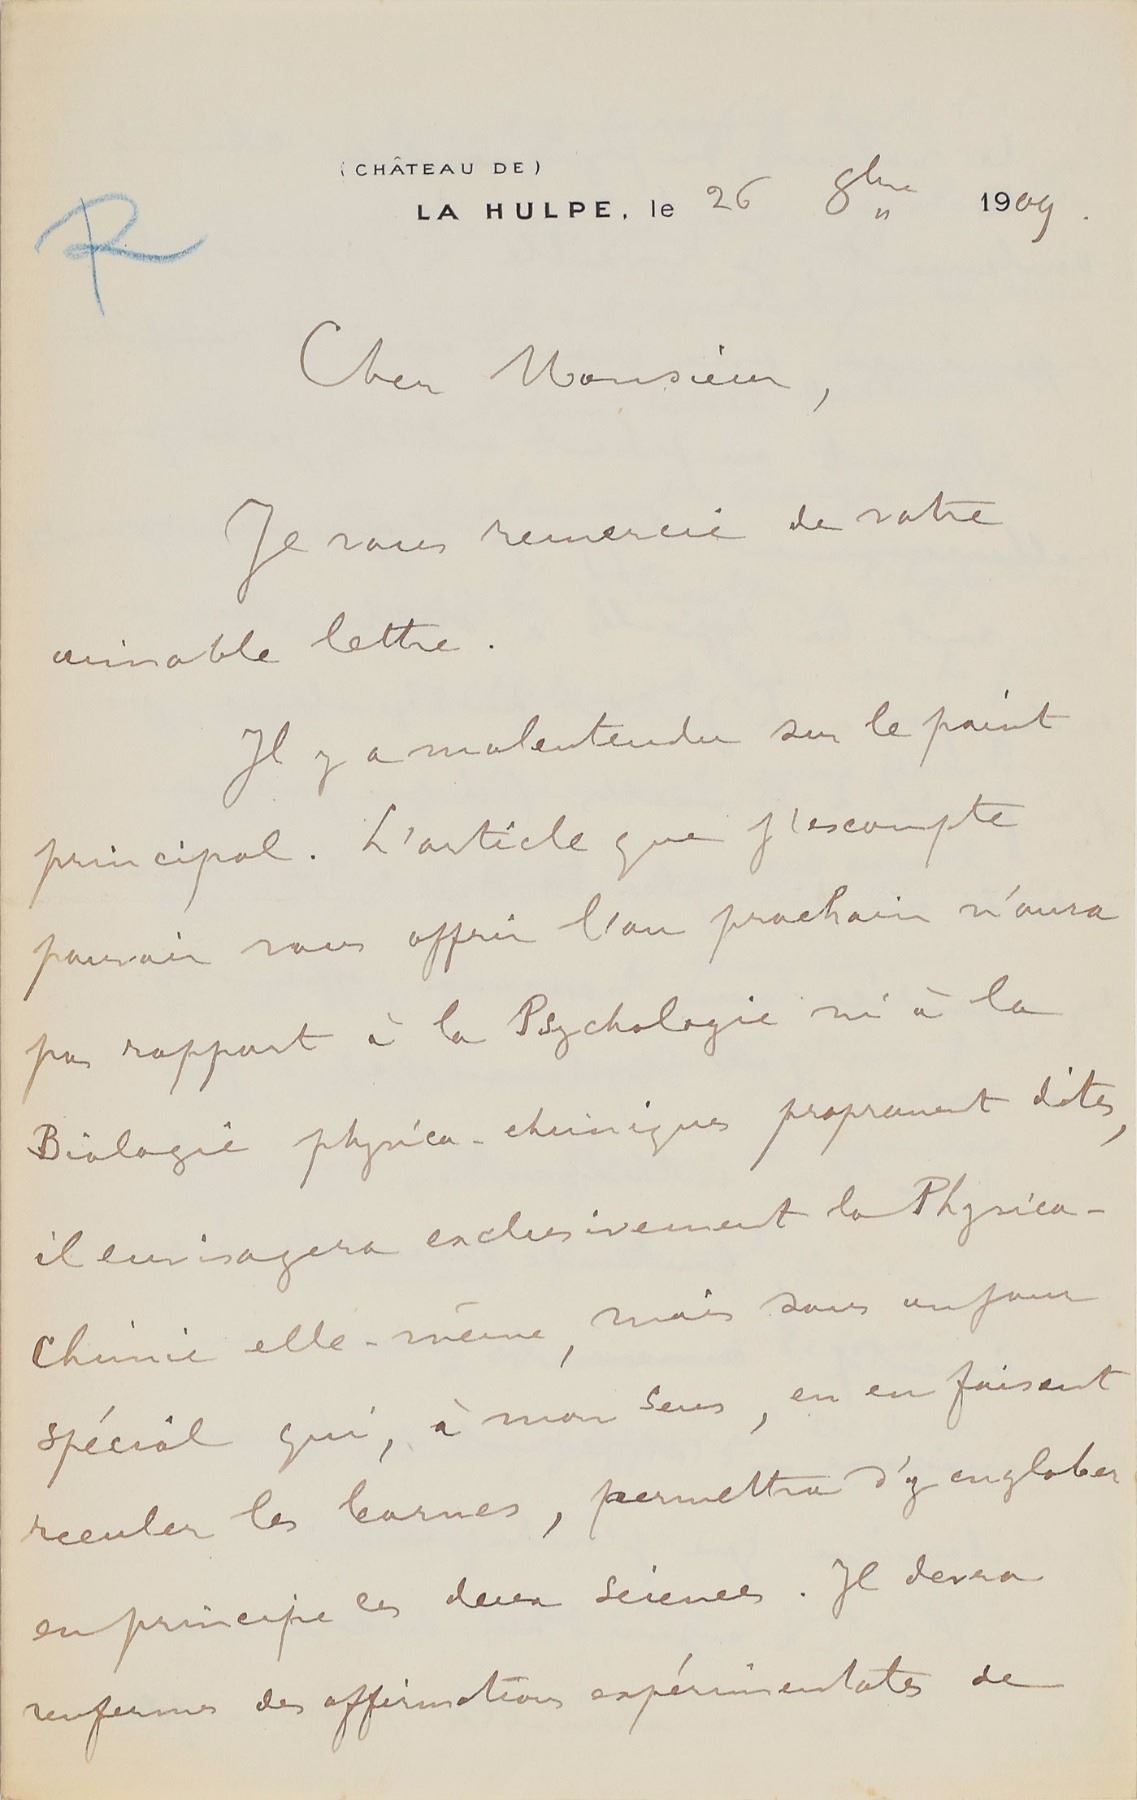 R
(CHÂTEAU DE)
LA HULPE, le 26 8bre 1909.
Cher Monsieur,
Je vous remercie de votre
aimable lettre.
Il y a malentendu sur le point
principal. L'article que j'escompte
pouvoir vous offrir l'an prochain n'aura
pas rapport à la Psychologie ni à la
Biologie physico-chimiques proprement dites,
il envisagera exclusivement la Physico-
Chimie elle-même, mais sous un jour
spécial qui, à mon sens, en en faisant
reculer les bornes, permettra d'y englober
en principe ces deux sciences. Il devra
renfermer des affirmations expérimentales de